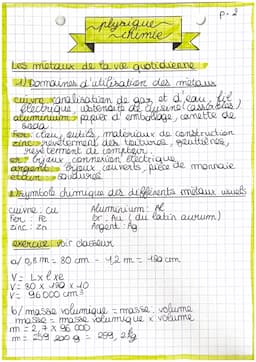 p. 2
physique
chimie
Les métaux de la vie quotidienne
1) Domaines d'utilisation des métaux
cuivre : canalisation de gaz et d'eau, fil
électrique, ustensile de cuisine (casseroles)
aluminium : papier d'embalage, canette de
soda
fer : clou, outils, materiaux de construction
zinc : revêtement des toitures, gouttières,
revêtement de comptoir.
or : bijoux, connexion électrique,
argent : bijoux couverts, pièce de monnaie
etain : soudures
2) symbole chimique des différents métaux usuels
cuivre : Cu
Aluminium : Al
Fer : Fe
Or : Au (du latin aurum)
zinc : Zn
Argent : Ag
exercice voir classeur
a/ 0,8 m = 80 cm - 1,2 m = 120 cm
V = L x l x e
V = 80 x 120 x 10
V = 96 000 cm³
b/ masse volumique = masse : volume
masse = masse volumique x volume
m = 2,7 x 96 000
m = 259 200 g = 259,2 kg